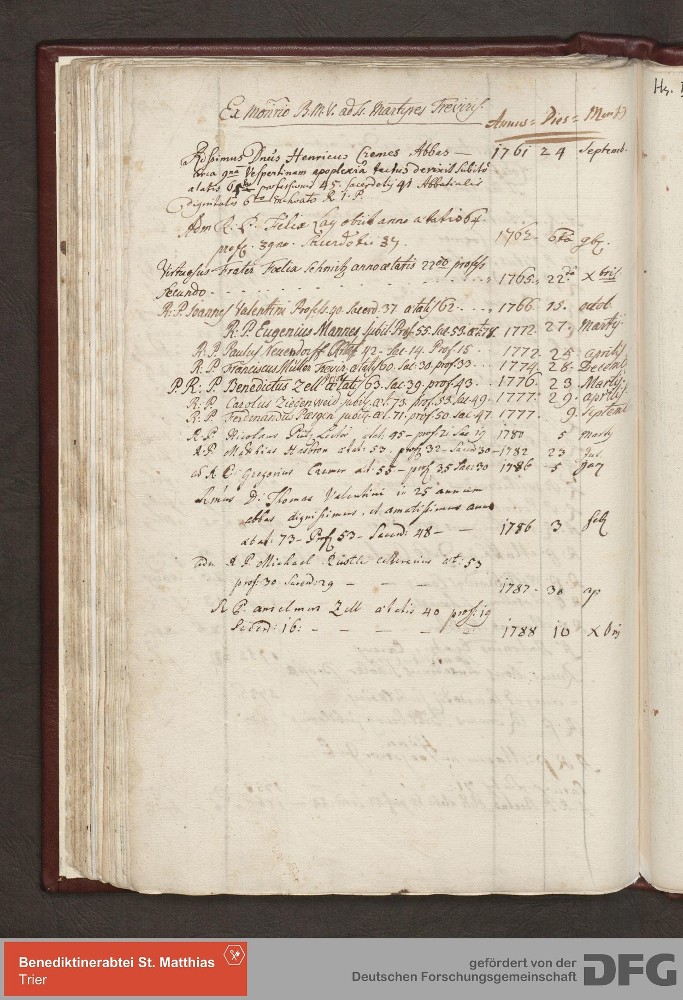 Ex Monrio B.M.V. ad SS. Martyres Treviris.
Annus = Dies = Mens
Rdssimus Dnus Henricus Cremes Abbas — 1761 24 Septemb.
circa 9na Vespertinam apoplexia tactus derixit subito
ætatis professionis 45. sacerdotij 41 Abbatialis
dignitatis 6to R. I. P.
Adm R. P. Felix Lay obiit anno ætatis 64
prof. 39no. Sacerdotii 37. 1762. 6ta 9br.
Virtuosus Frater Foelix Schmitz anno ætatis 22do profess
secundo - - - 1765. 22da Xbris
R. P. Joannes Valentini Profess. 40. Sacerd. 37 ætatis 62 - - 1766 15. octob.
R. P. Eugenius Mannes jubil. Prof. 55. Sac. 53. æt. 78. 1772. 27. Martij
R. P. Paulus Neuendorff 42 - Sac. 14. Prof. 15. 1772. 25. aprilis
R. P. Franciscus Müller Trevir. ætatis 60. Sac. 30. prof. 33. - - 1774. 28. Decemb.
P. R. P. Benedictus Zell ætatis 63. Sac. 39. prof. 43. 1776. 23 Martij.
R. P. Carolus Ziedenweid jubil. æt. 73. prof. 53. Sac. 49. 1777. 29. aprilis
R. P. Ferdinandus jubil. æt. 71. prof. 50. Sac. 47 1777. 9. Septemb
R. P. Nicolaus ætat. 45 - prof. 21. Sac. 19 1780 5 marty
R. P. Mathias ætat: 53. prof. 32 - Sacerd. 30 - 1782 23
R. P. Gregorius Cremer æt. 55 - prof. 35 Sac. 30 1786 5
Rmus D. Thomas Valentini in 25 annum
abbas dignissimus, et amatissimus anno
ætat: 73 - Prof. 53 - Sacerd: 48 — 1786 3 feb
R. P. Michael cellerarius æt. 53
prof: 30 Sacerd: 29 — — — 1787. 30 ap
R P. anselmus Zell ætatis 40 prof: 19
Sacerd: 16: — — — 1788 10 Xbris
Hs.
Benediktinerabtei St. Matthias
Trier
gefördert von der
Deutschen Forschungsgemeinschaft
DFG